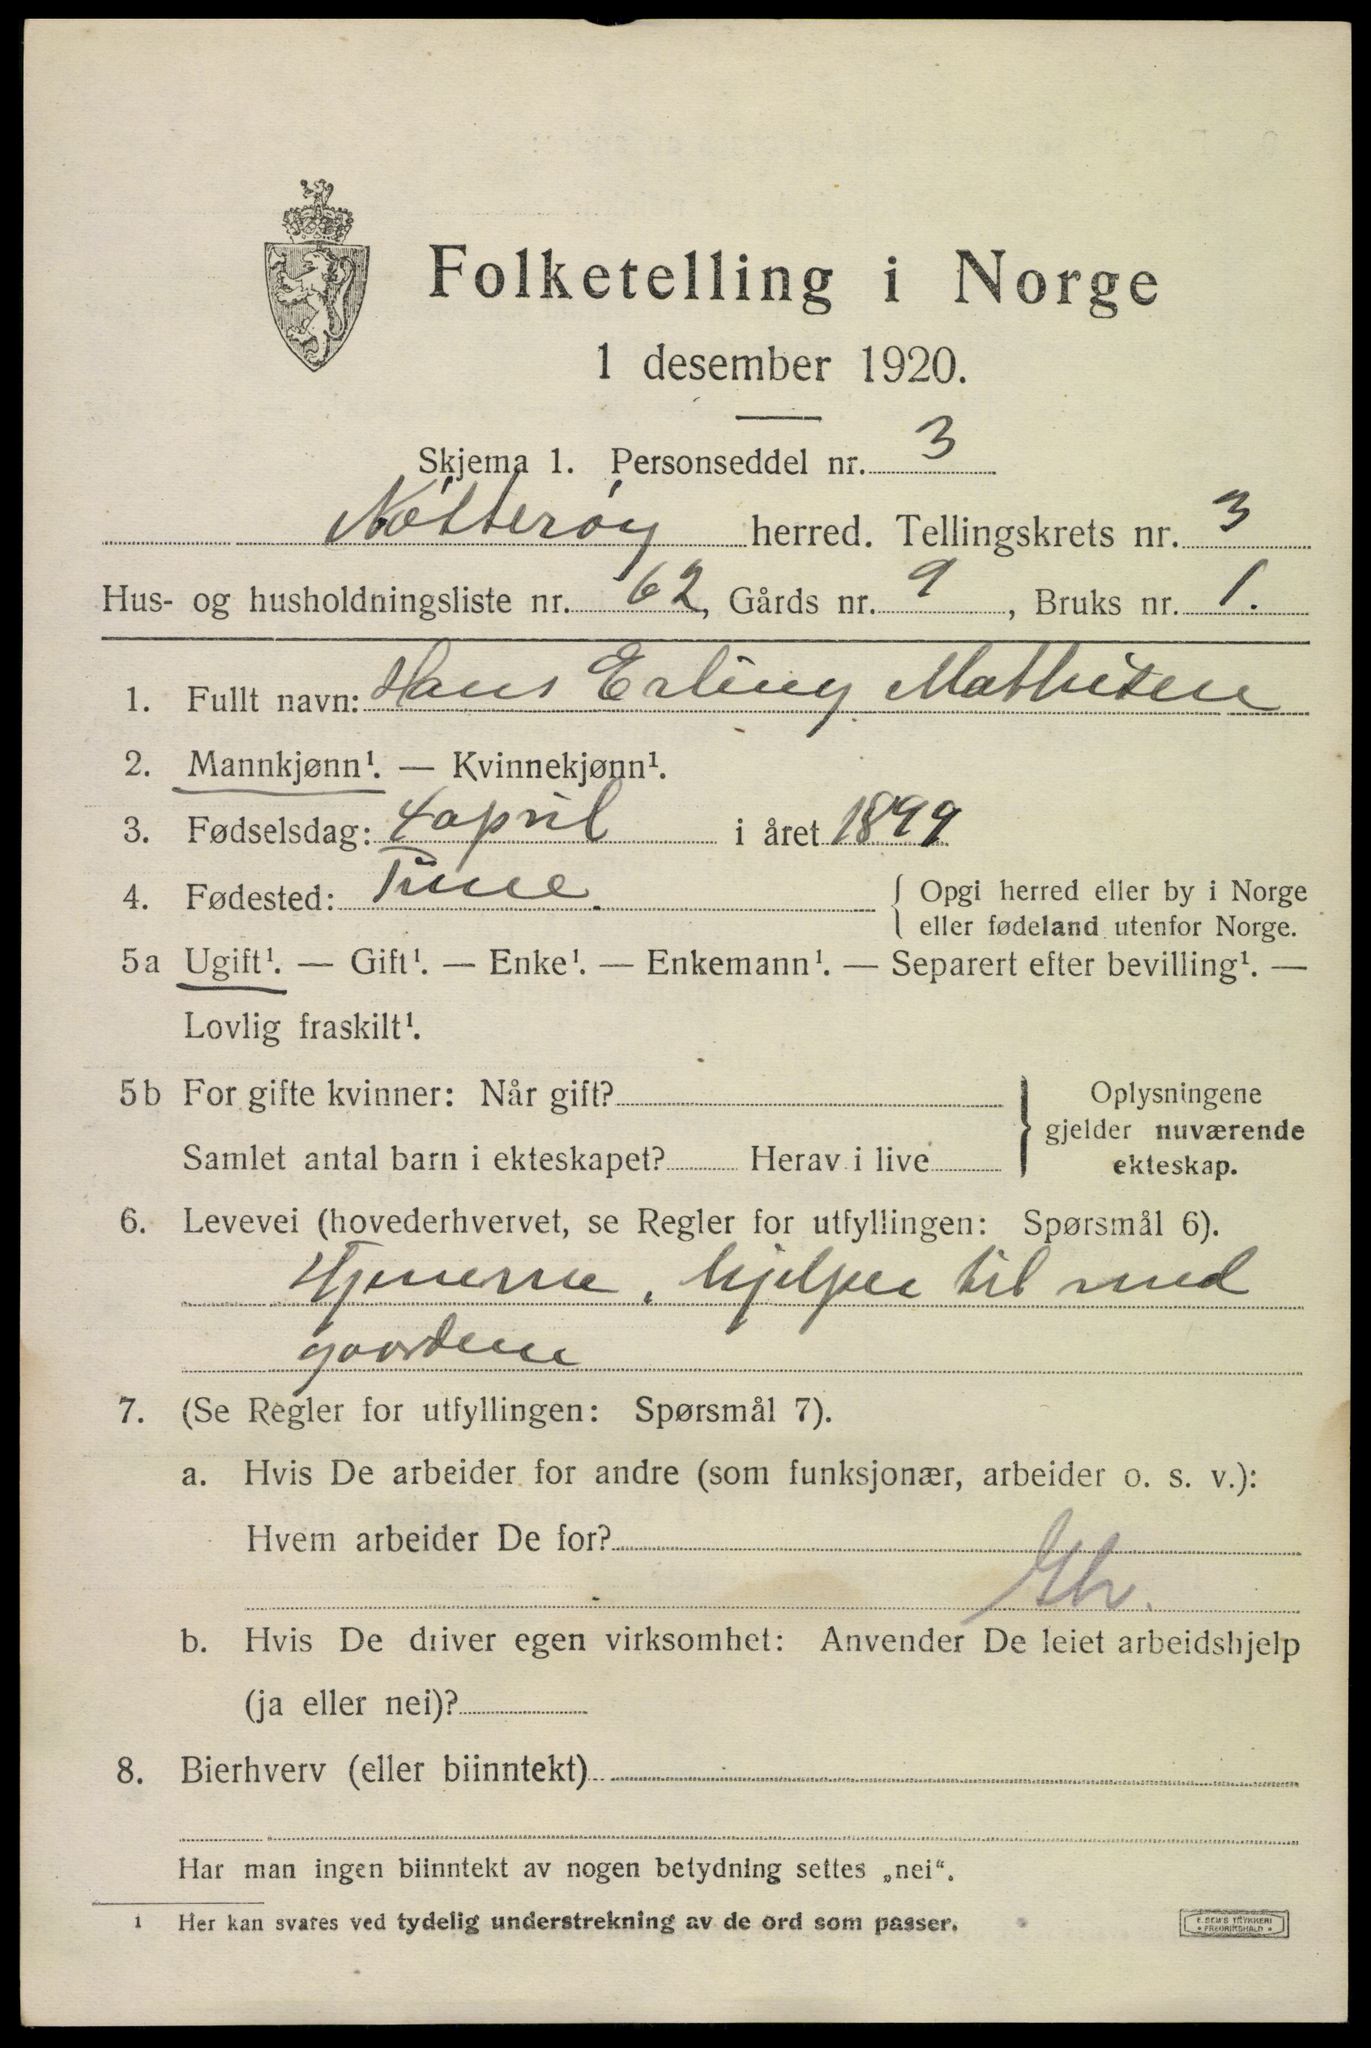 Folketelling i Norge
1 desember 1920.
Skjema 1. Personseddel nr. 3
Nötterøy herred. Tellingskrets nr. 3
Hus- og husholdningsliste nr. 62, Gårds nr. 9, Bruks nr. 1.
1. Fullt navn: Hans Erling Mathisen
2. Mannkjønn¹. — Kvinnekjønn¹.
3. Fødselsdag: 4 april i året 1899
4. Fødested: Tune. { Opgi herred eller by i Norge
eller fødeland utenfor Norge.
5a Ugift¹. — Gift¹. — Enke¹. — Enkemann¹. — Separert efter bevilling¹. —
Lovlig fraskilt¹.
5b For gifte kvinner: Når gift? } Oplysningene
gjelder nuværende
Samlet antal barn i ekteskapet? Herav i live ekteskap.
6. Levevei (hovederhvervet, se Regler for utfyllingen: Spørsmål 6).
Hjemme, hjelper til med
7. (Se Regler for utfyllingen: Spørsmål 7).
a. Hvis De arbeider for andre (som funksjonær, arbeider o. s. v.):
Hvem arbeider De for?
b. Hvis De driver egen virksomhet: Anvender De leiet arbeidshjelp
(ja eller nei)?
8. Bierhverv (eller biinntekt)
Har man ingen biinntekt av nogen betydning settes „nei“.
1 Her kan svares ved tydelig understrekning av de ord som passer.
E. SEM'S TRYKKERI
• FREDRIKSHALD •